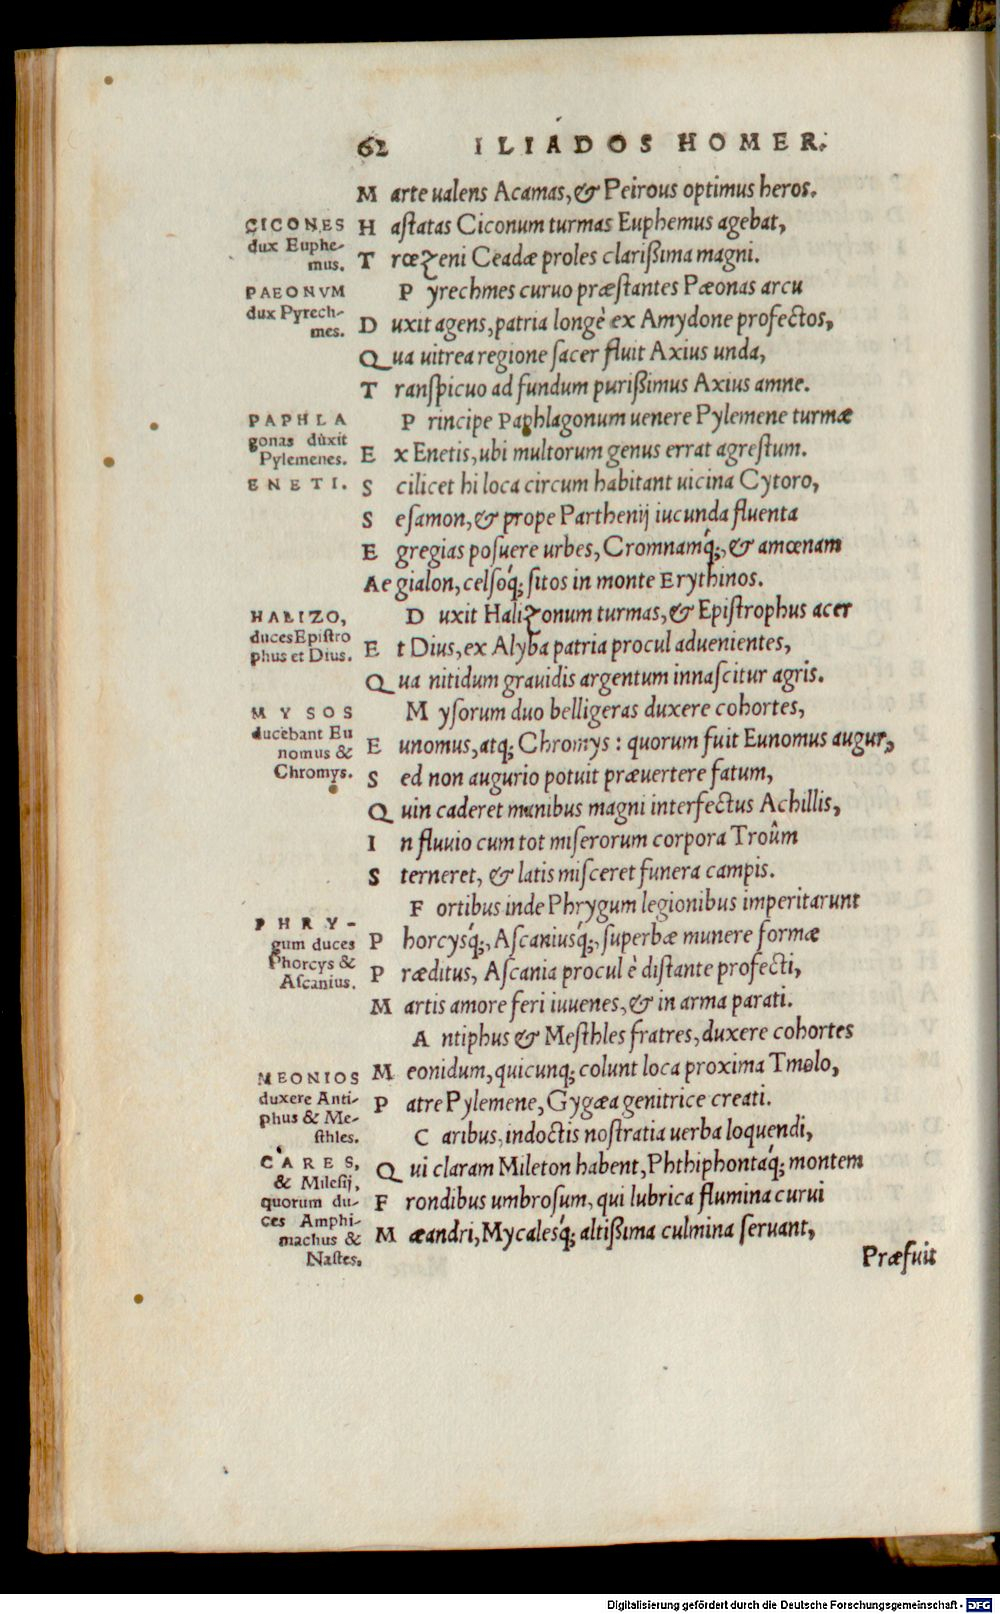 62 ILIADOS HOMER.
Marte ualens Acamas, & Peirous optimus heros.
CICONES
dux Euphe-
mus.
Hastatas Ciconum turmas Euphemus agebat,
Trœzeni Ceadæ proles clarißima magni.
PAEONVM
dux Pyrech-
mes.
Pyrechmes curuo præstantes Pæonas arcu
Duxit agens, patria longè ex Amydone profectos,
Qua uitrea regione sacer fluit Axius unda,
Transpicuo ad fundum purißimus Axius amne.
PAPHLA
gonas duxit
Pylemenes.
Principe Paphlagonum uenere Pylemene turmæ
Ex Enetis, ubi multorum genus errat agrestum.
ENETI.
Scilicet hi loca circum habitant uicina Cytoro,
Sesamon, & prope Parthenij iucunda fluenta
Egregias posuere urbes, Cromnamq́;, & amœnam
Aegialon, celsoq́; sitos in monte Erythinos.
HALIZO,
duces Epistro
phus et Dius.
Duxit Halizonum turmas, & Epistrophus acer
Et Dius, ex Alyba patria procul aduenientes,
Qua nitidum grauidis argentum innascitur agris.
MYSOS
ducebant Eu
nomus &
Chromys.
Mysorum duo belligeras duxere cohortes,
Eunomus, atq; Chromys : quorum fuit Eunomus augur,
Sed non augurio potuit præuertere fatum,
Quin caderet manibus magni interfectus Achillis,
In fluuio cum tot miserorum corpora Troûm
Sterneret, & latis misceret funera campis.
PHRY-
gum duces
Phorcys &
Ascanius.
Fortibus inde Phrygum legionibus imperitarunt
Phorcysq́;, Ascaniusq́;, superbæ munere formæ
Præditus, Ascania procul è distante profecti,
Martis amore feri iuuenes, & in arma parati.
Antiphus & Mesthles fratres, duxere cohortes
MEONIOS
duxere Anti-
phus & Me-
sthles.
Meonidum, quicunq; colunt loca proxima Tmolo,
Patre Pylemene, Gygæa genitrice creati.
CARES,
& Milesij,
quorum du-
ces Amphi-
machus &
Nastes.
Caribus, indoctis nostratia uerba loquendi,
Qui claram Mileton habent, Phthiphontaq́; montem
Frondibus umbrosum, qui lubrica flumina curui
Mæandri, Mycalesq́; altißima culmina seruant,
Præfuit
Digitalisierung gefördert durch die Deutsche Forschungsgemeinschaft - DFG